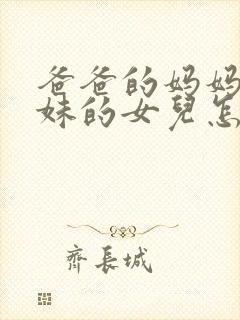 爸爸的妈妈
妹的女兒怎
齊長城